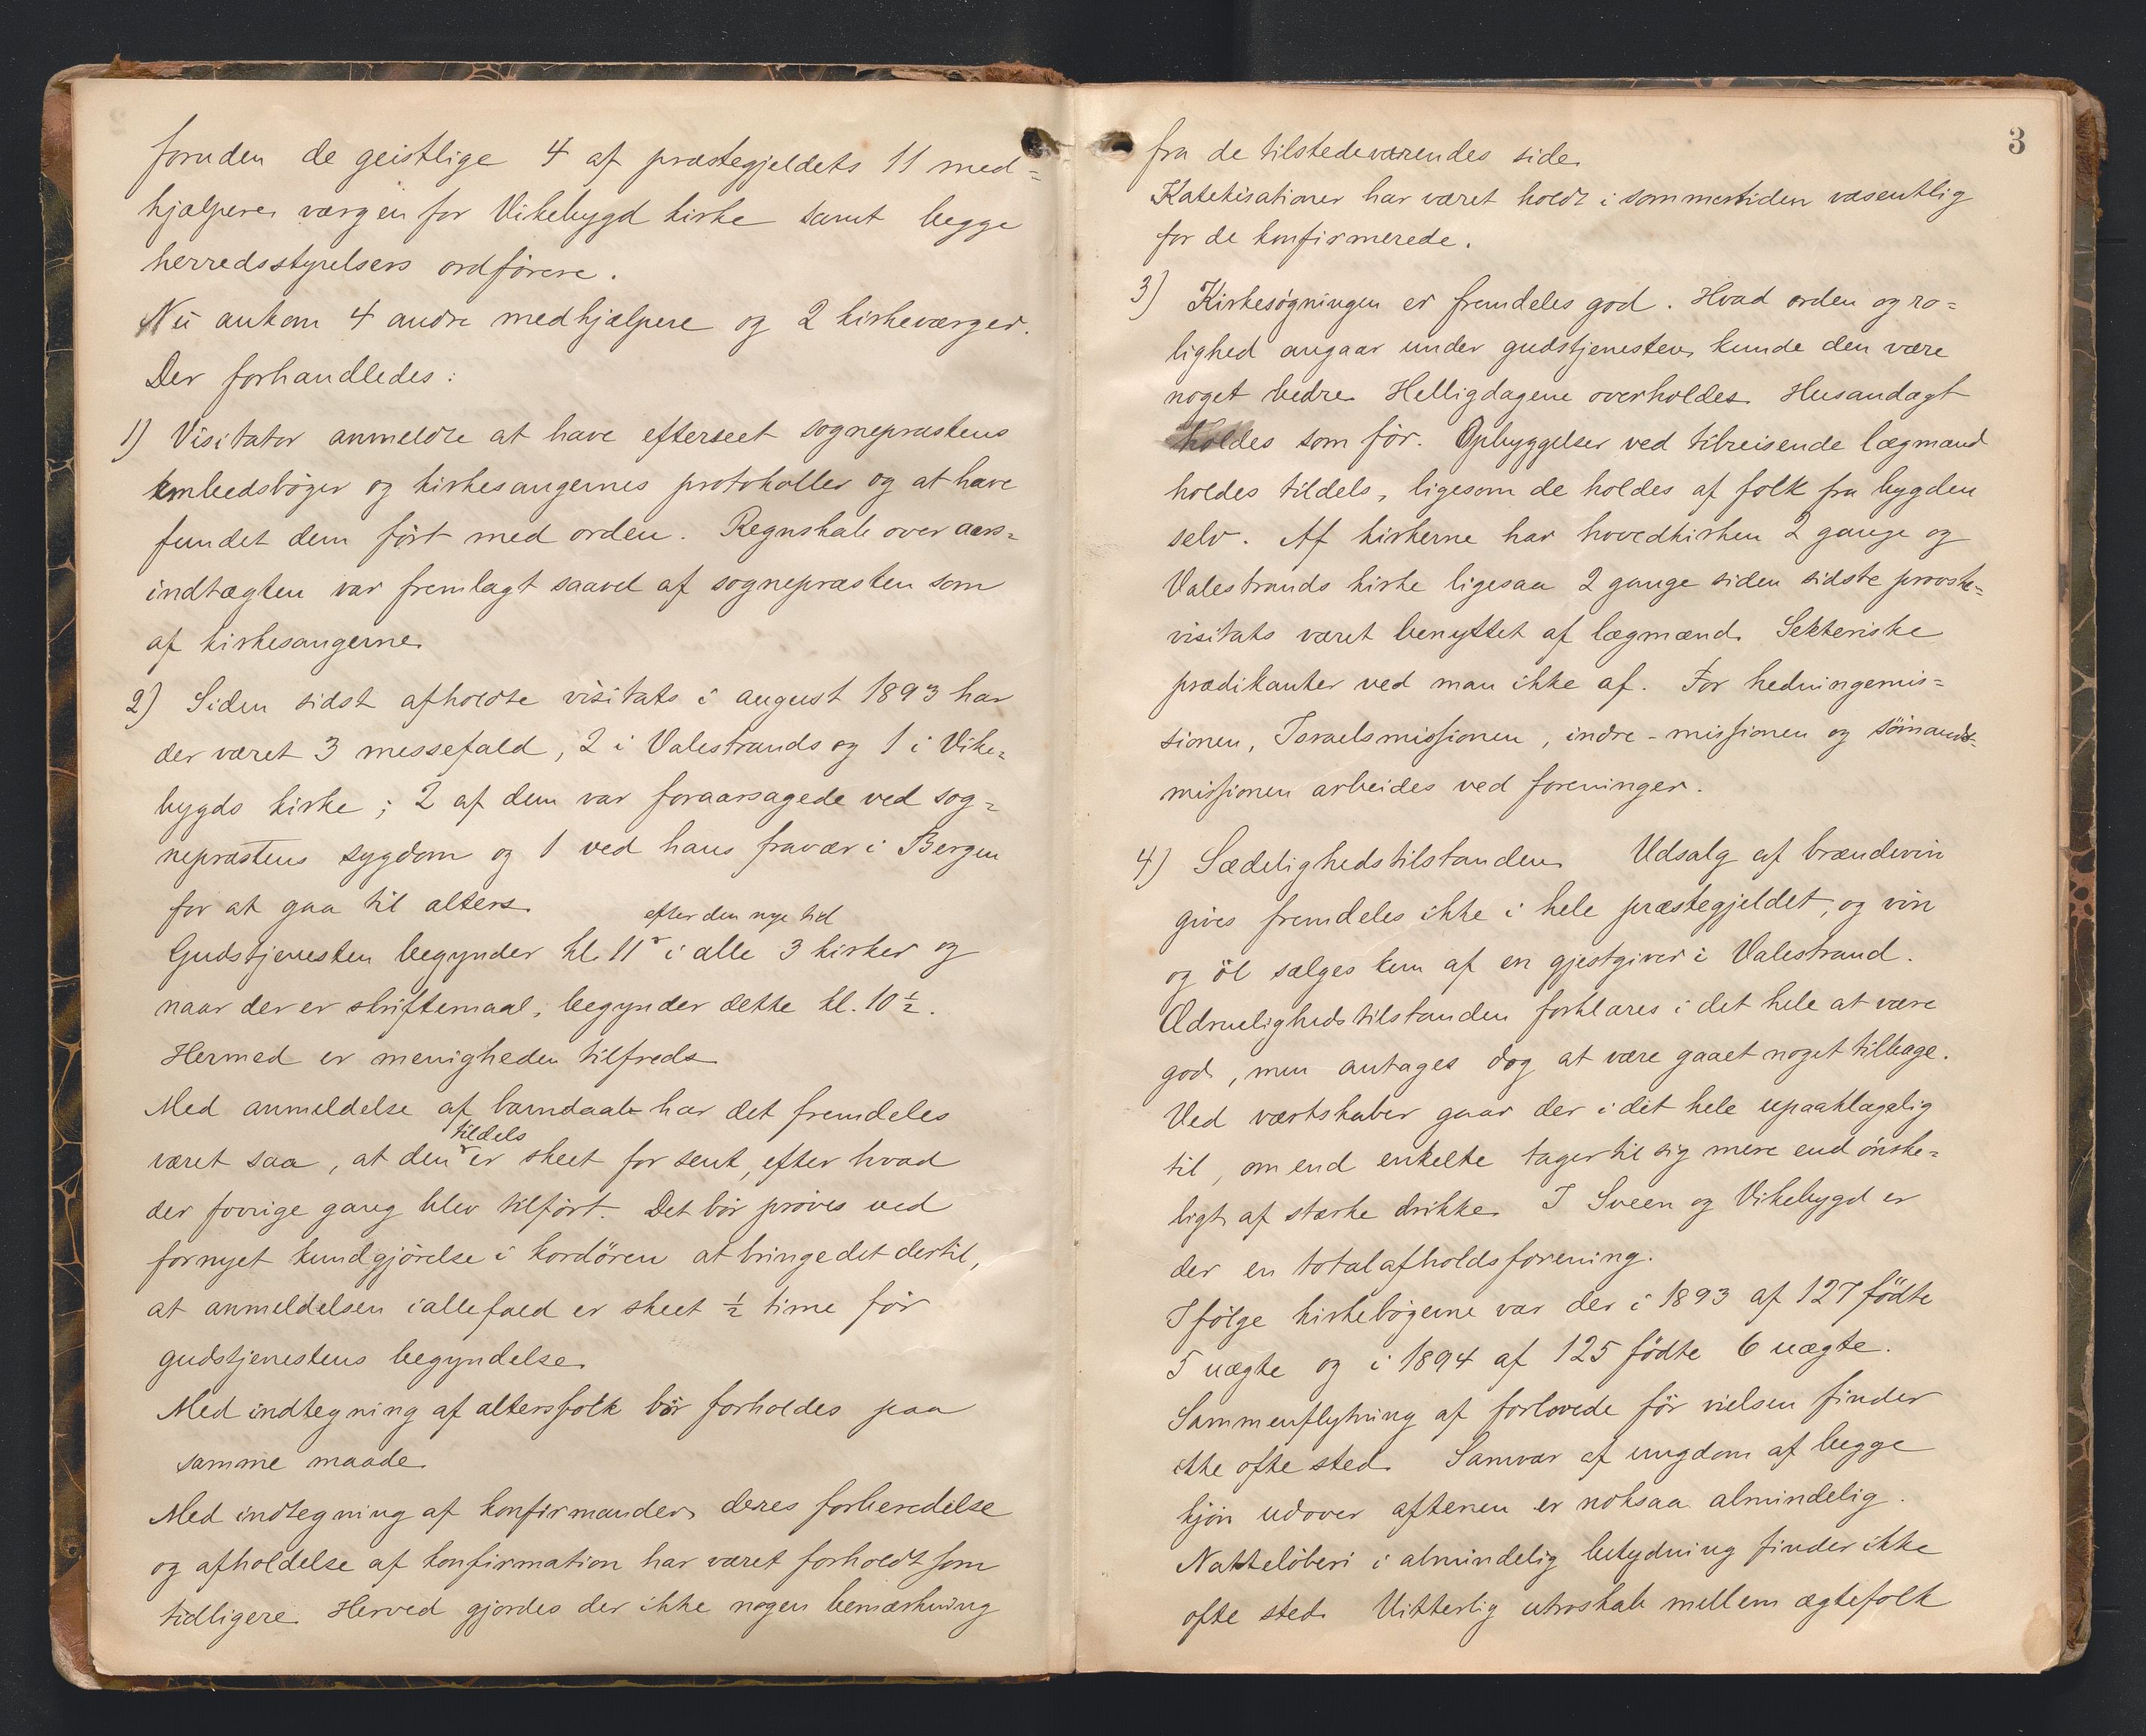 foruden de geistlige 4 af præstegjeldets 11 med=
hjælpere, værgen for Vikebygd kirke samt begge
herredsstyrelsers ordførere.
Nu ankom 4 andre medhjælpere og 2 kirkeværger.
Der forhandledes:
1) Visitator anmeldte at have efterseet sognepræstens
embedsbøger og kirkesangernes protokoller og at have
fundet dem ført med orden. Regnskab over aars=
indtægten var fremlagt saavel af sognepræsten som
af kirkesangerne.
2) Siden sidst afholdte visitats i august 1893 har
der været 3 messefald, 2 i Valestrands og 1 i Vike=
bygds kirke; 2 af dem var foraarsagede ved sog=
nepræstens sygdom og 1 ved hans fravær i Bergen
for at gaa til alters.
efter den nye tid
Gudstjenesten begynder kl. 11 i alle 3 kirker og
naar der er skriftemaal, begynder dette kl. 10 ½.
Hermed er menigheden tilfreds.
Med anmeldelse af barndaab har det fremdeles
tildels
været saa, at den er skeet for sent, efter hvad
der forrige gang blev tilført. Det bör pröves ved
fornyet kundgjörelse i kordören at bringe det dertil,
at anmeldelsen iallefald er skeet ½ time för
gudstjenestens begyndelse.
Med indtegning af altersfolk bör forholdes paa
samme maade.
Med indtegning af konfirmander, deres forberedelse
og afholdelse af konfirmation har været forholdt som
tidligere. Herved gjordes der ikke nogen bemærkning
3
fra de tilstedeværendes side.
Katekisationer har været holdt i sommertiden væsentlig
for de konfirmerede.
3) Kirkesøgningen er fremdeles god. Hvad orden og ro=
lighed angaar under gudstjenesten, kunde den være
noget bedre. Helligdagene overholdes. Husandagt
holdes som för. Opbyggelser ved tilreisende lægmænd
holdes tildels, ligesom de holdes af folk fra bygden
selv. Af kirkerne har hovedkirken 2 gange og
Valestrands kirke ligesaa 2 gange siden sidste provste=
visitats været benyttet af lægmænd. Sekteriske
prædikanter ved man ikke af. For hedningemis=
sionen, Israelsmissionen, indre-missionen og sömands=
missionen arbeides ved foreninger.
4) Sædelighedstilstanden. Udsalg af brændevin
gives fremdeles ikke i hele præstegjeldet, og vin
og öl sælges kun af en gjestgiver i Valestrand.
Ædruelighedstilstanden forklares i det hele at være
god, men antages dog at være gaaet noget tilbage.
Ved værtskaber gaar der i det hele upaaklagelig
til, om end enkelte tager til sig mere end önske=
ligt af stærke drikke. I Sveen og Vikebygd er
der en totalafholdsforening.
Ifölge kirkebögerne var der i 1893 af 127 födte
5 uægte og i 1894 af 125 födte 6 uægte.
Sammenflytning af forlovede för vielsen finder
ikke ofte sted. Samvær af ungdom af begge
kjön udover aftenen er noksaa almindelig.
Natteløberi i almindelig betydning finder ikke
ofte sted. Vitterlig utroskab mellem ægtefolk